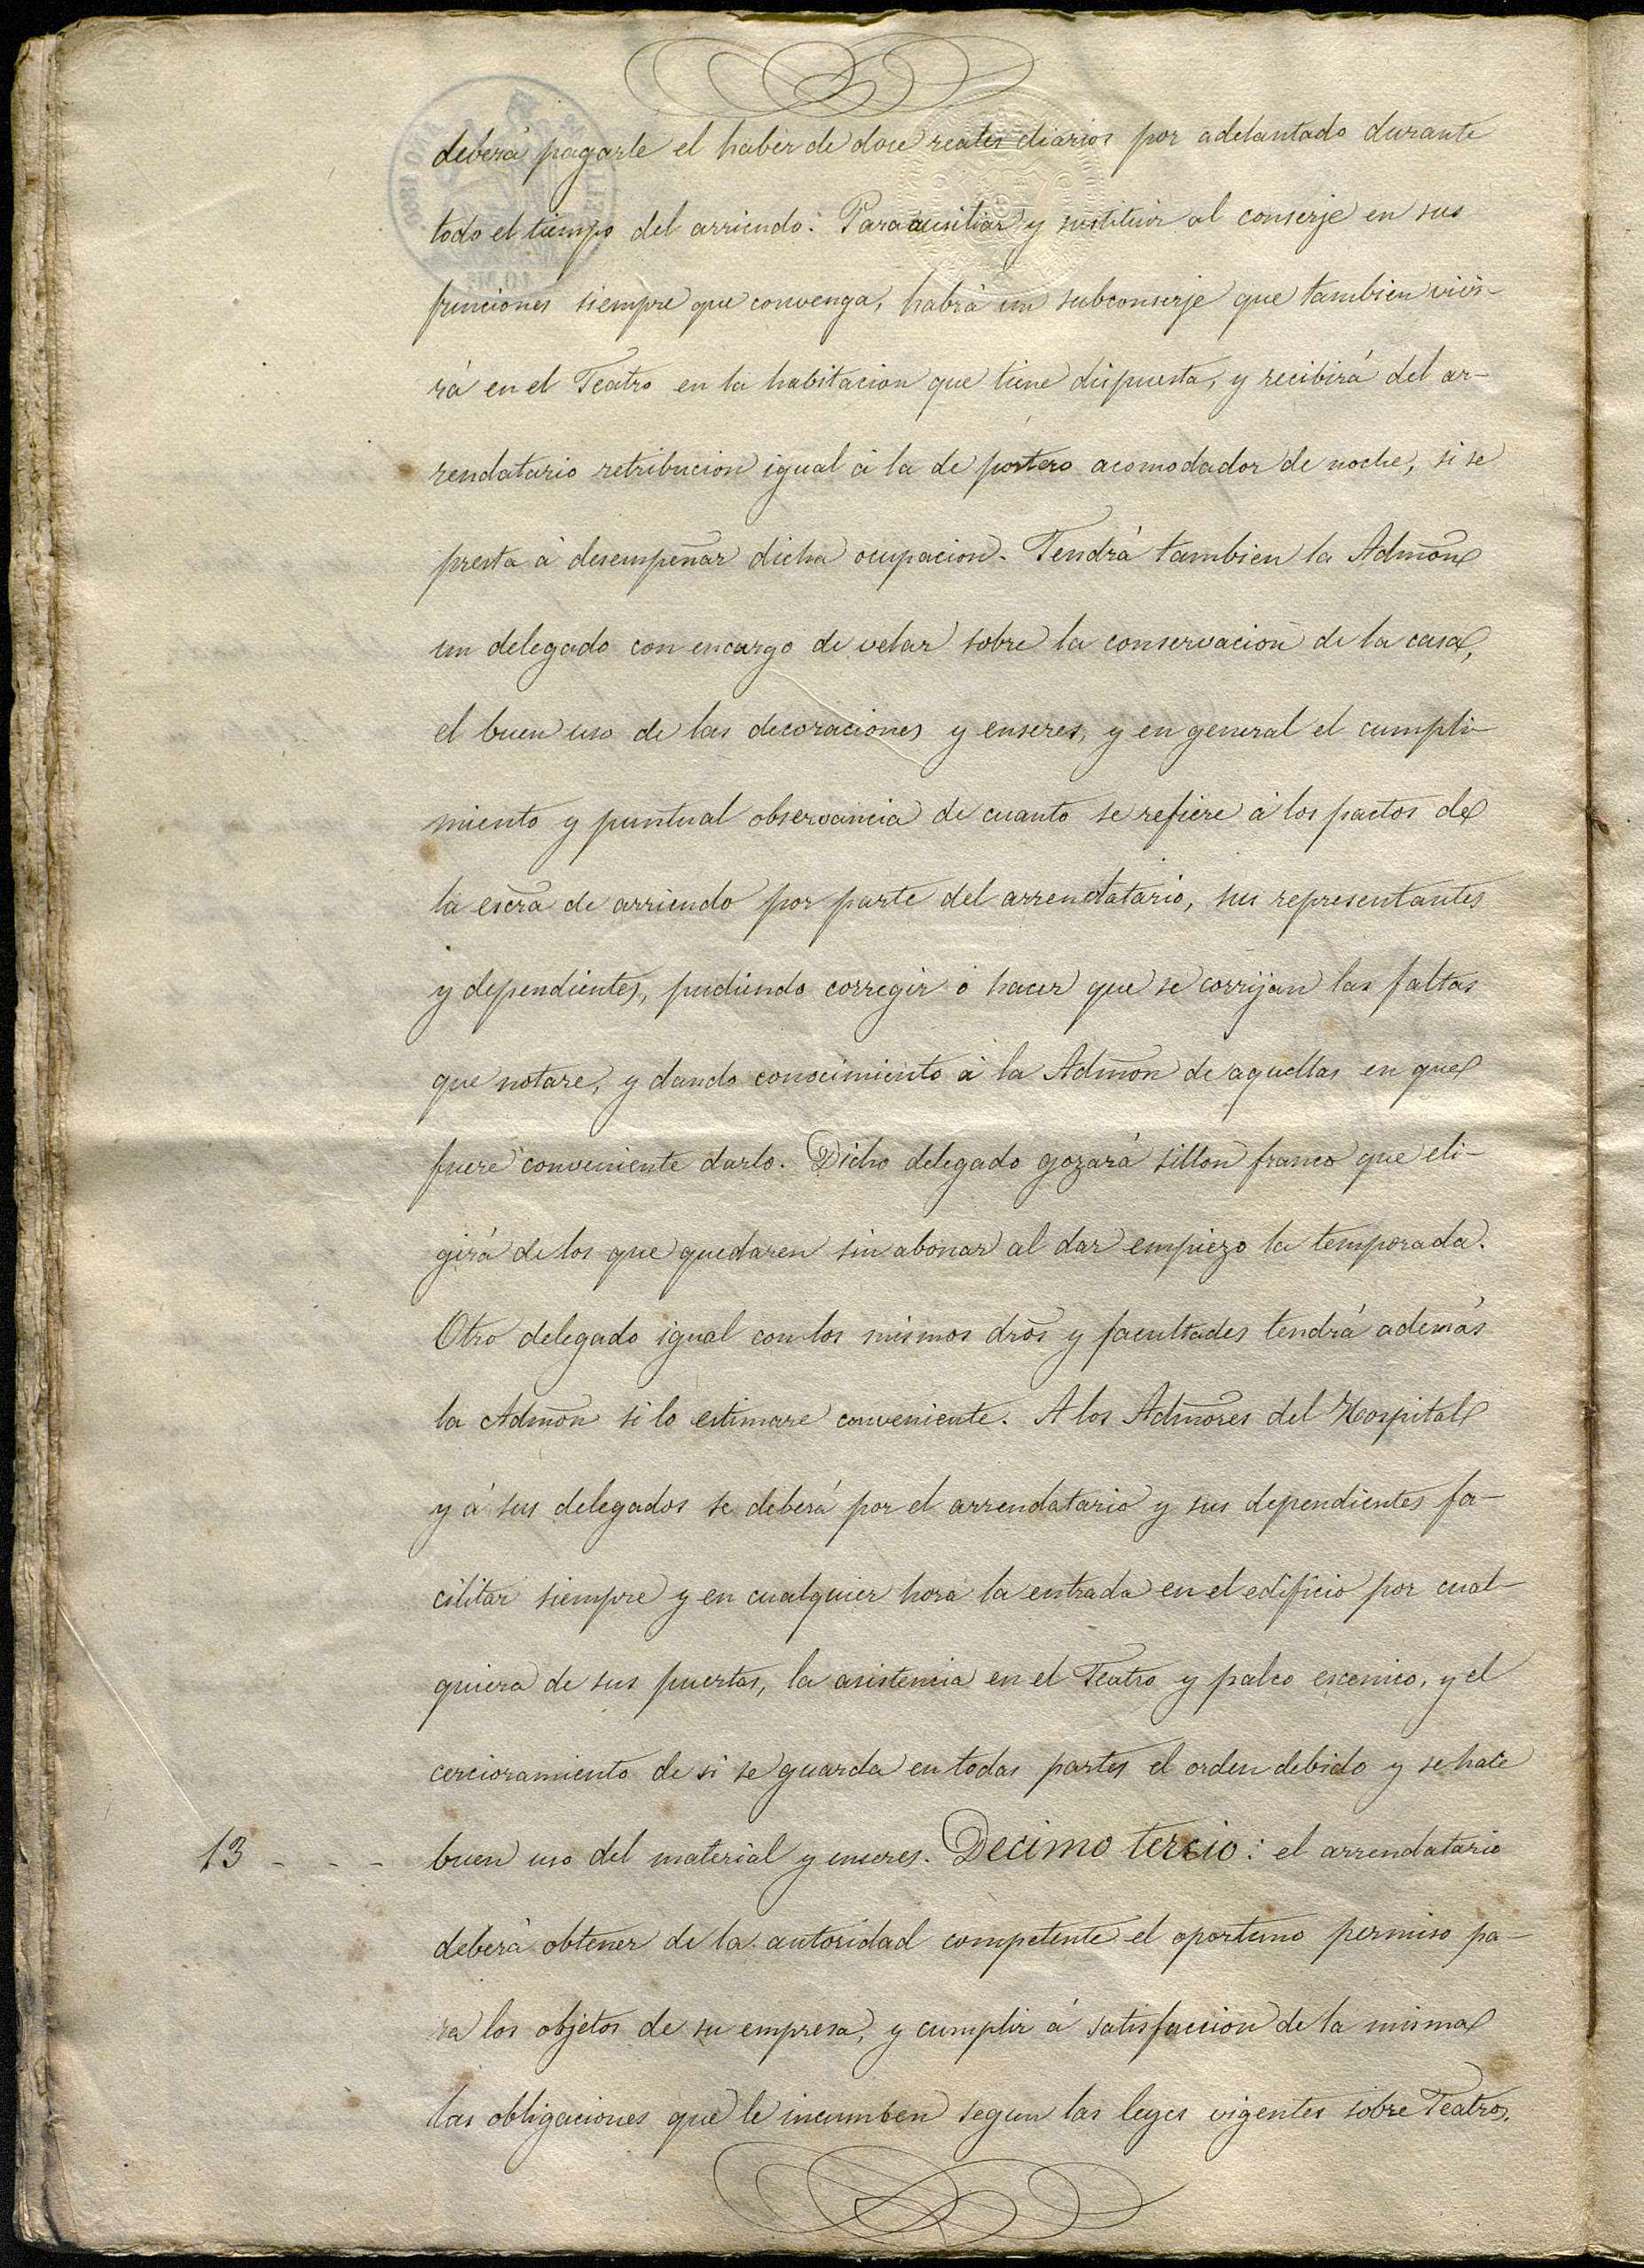 deberá pagarle el haber de doce reales diarios por adelantado durante
todo el tiempo del arriendo. Para ausiliar y sustituir al conserje en sus
funciones siempre que convenga, habrá un subconserje que tambien vivi-
rá en el Teatro en la habitacion que tiene dispuesta, y recibirá del ar-
rendatario retribucion igual á la de portero acomodador de noche, si se
presta á desempeñar dicha ocupacion. Tendrá tambien la Admon
un delegado con encargo de velar sobre la conservacion de la casa,
el buen uso de las decoraciones y enseres, y en general el cumpli-
miento y puntual observancia de cuanto se refiere á los pactos de
la escra de arriendo por parte del arrendatario, sus representantes
y dependientes, pudiendo corregir ó hacer que se corrijan las faltas
que notare, y dando conocimiento á la Admon de aquellas en que
fuere conveniente darlo. Dicho delegado gozará sillon franco que eli-
girá de los que quedaren sin abonar al dar empiezo la temporada.
Otro delegado igual con los mismos dros y facultades tendrá además
la Admon si lo estimare conveniente. A los Admores del Hospital
y á sus delegados se deberá por el arrendatario y sus dependientes fa-
cilitar siempre y en cualquier hora la entrada en el edificio por cual-
quiera de sus puertas, la asistencia en el Teatro y palco escenico, y el
cercioramiento de si se guarda en todas partes el orden debido y se hace
13 - - - buen uso del material y enseres. Decimo tercio: el arrendatario
deberá obtener de la autoridad competente el oportuno permiso pa-
ra los objetos de su empresa, y cumplir á satisfaccion de la misma
las obligaciones que le incumben segun las leyes vigentes sobre Teatros,